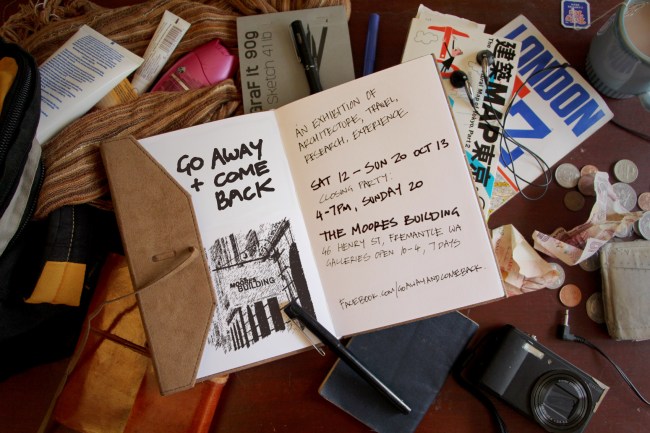 GO AWAY
+ COME
BACK
BUILDING
AN EXHIBITION OF
ARCHITECTURE, TRAVEL,
RESEARCH, EXPERIENCE
SAT 12 – SUN 20 OCT 13
CLOSING PARTY:
4-7PM, SUNDAY 20
THE MOORES BUILDING
46 HENRY ST, FREMANTLE WA
GALLERIES OPEN 10-4, 7 DAYS
FACEBOOK.COM/GOAWAYANDCOMEBACK
GraF It 90g
Sketch 411b
建築MAP東京
LONDON